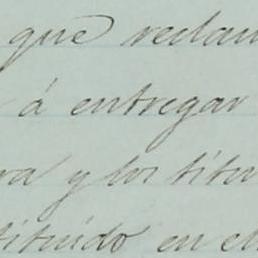 que reclam
á entregar
ra y los títu
tituido en el